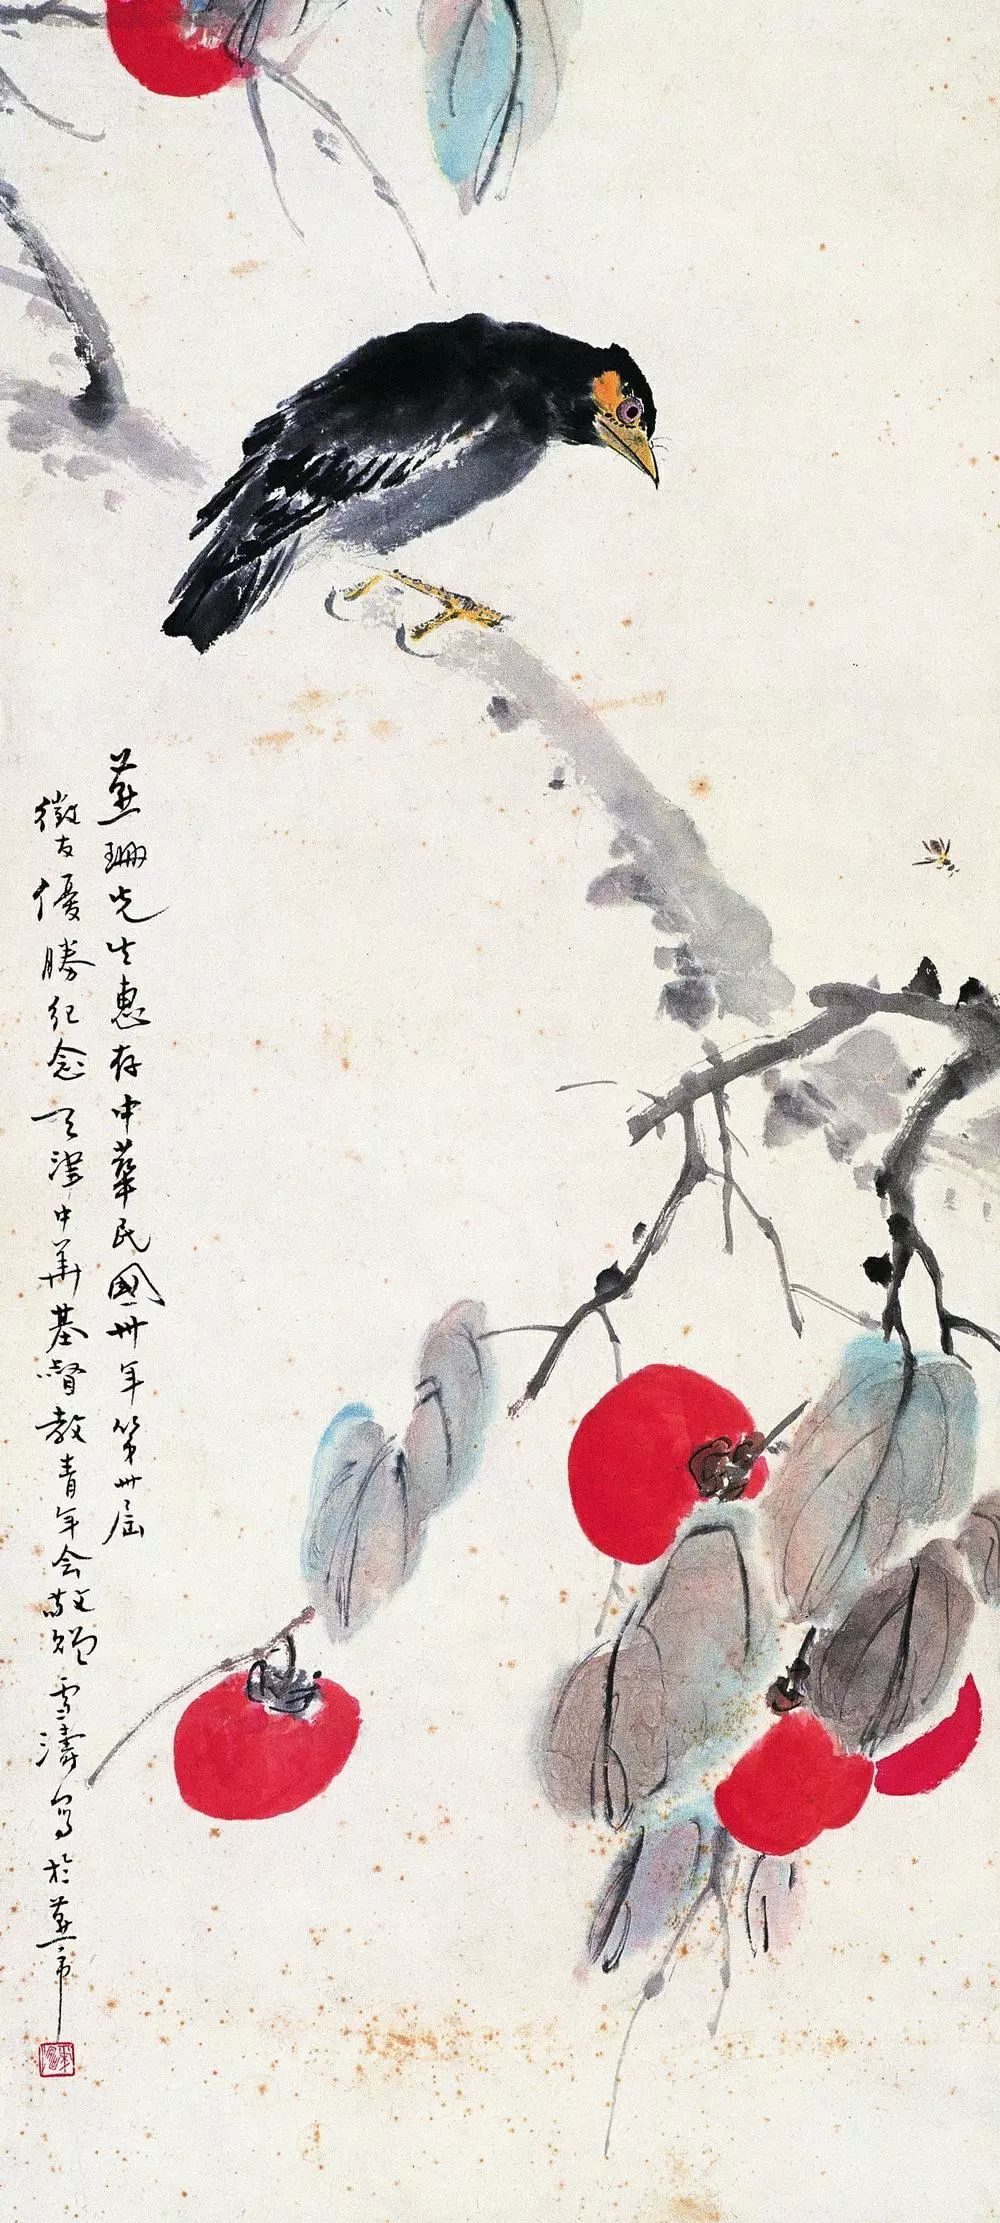 燕珊先生惠存中華民國卅年第卅屆
徵友優勝紀念天津中華基督教青年会敬贈雪濤寫於燕市